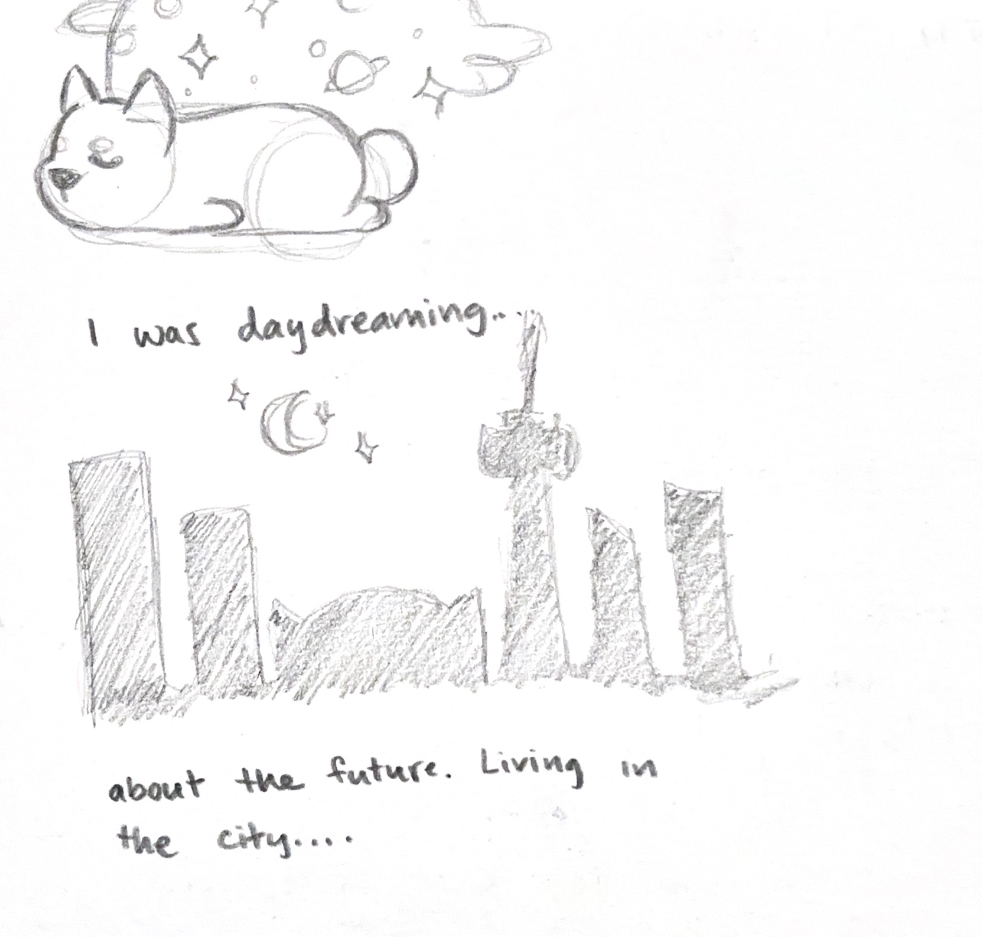 I was daydreaming...
about the future. Living in
the city....